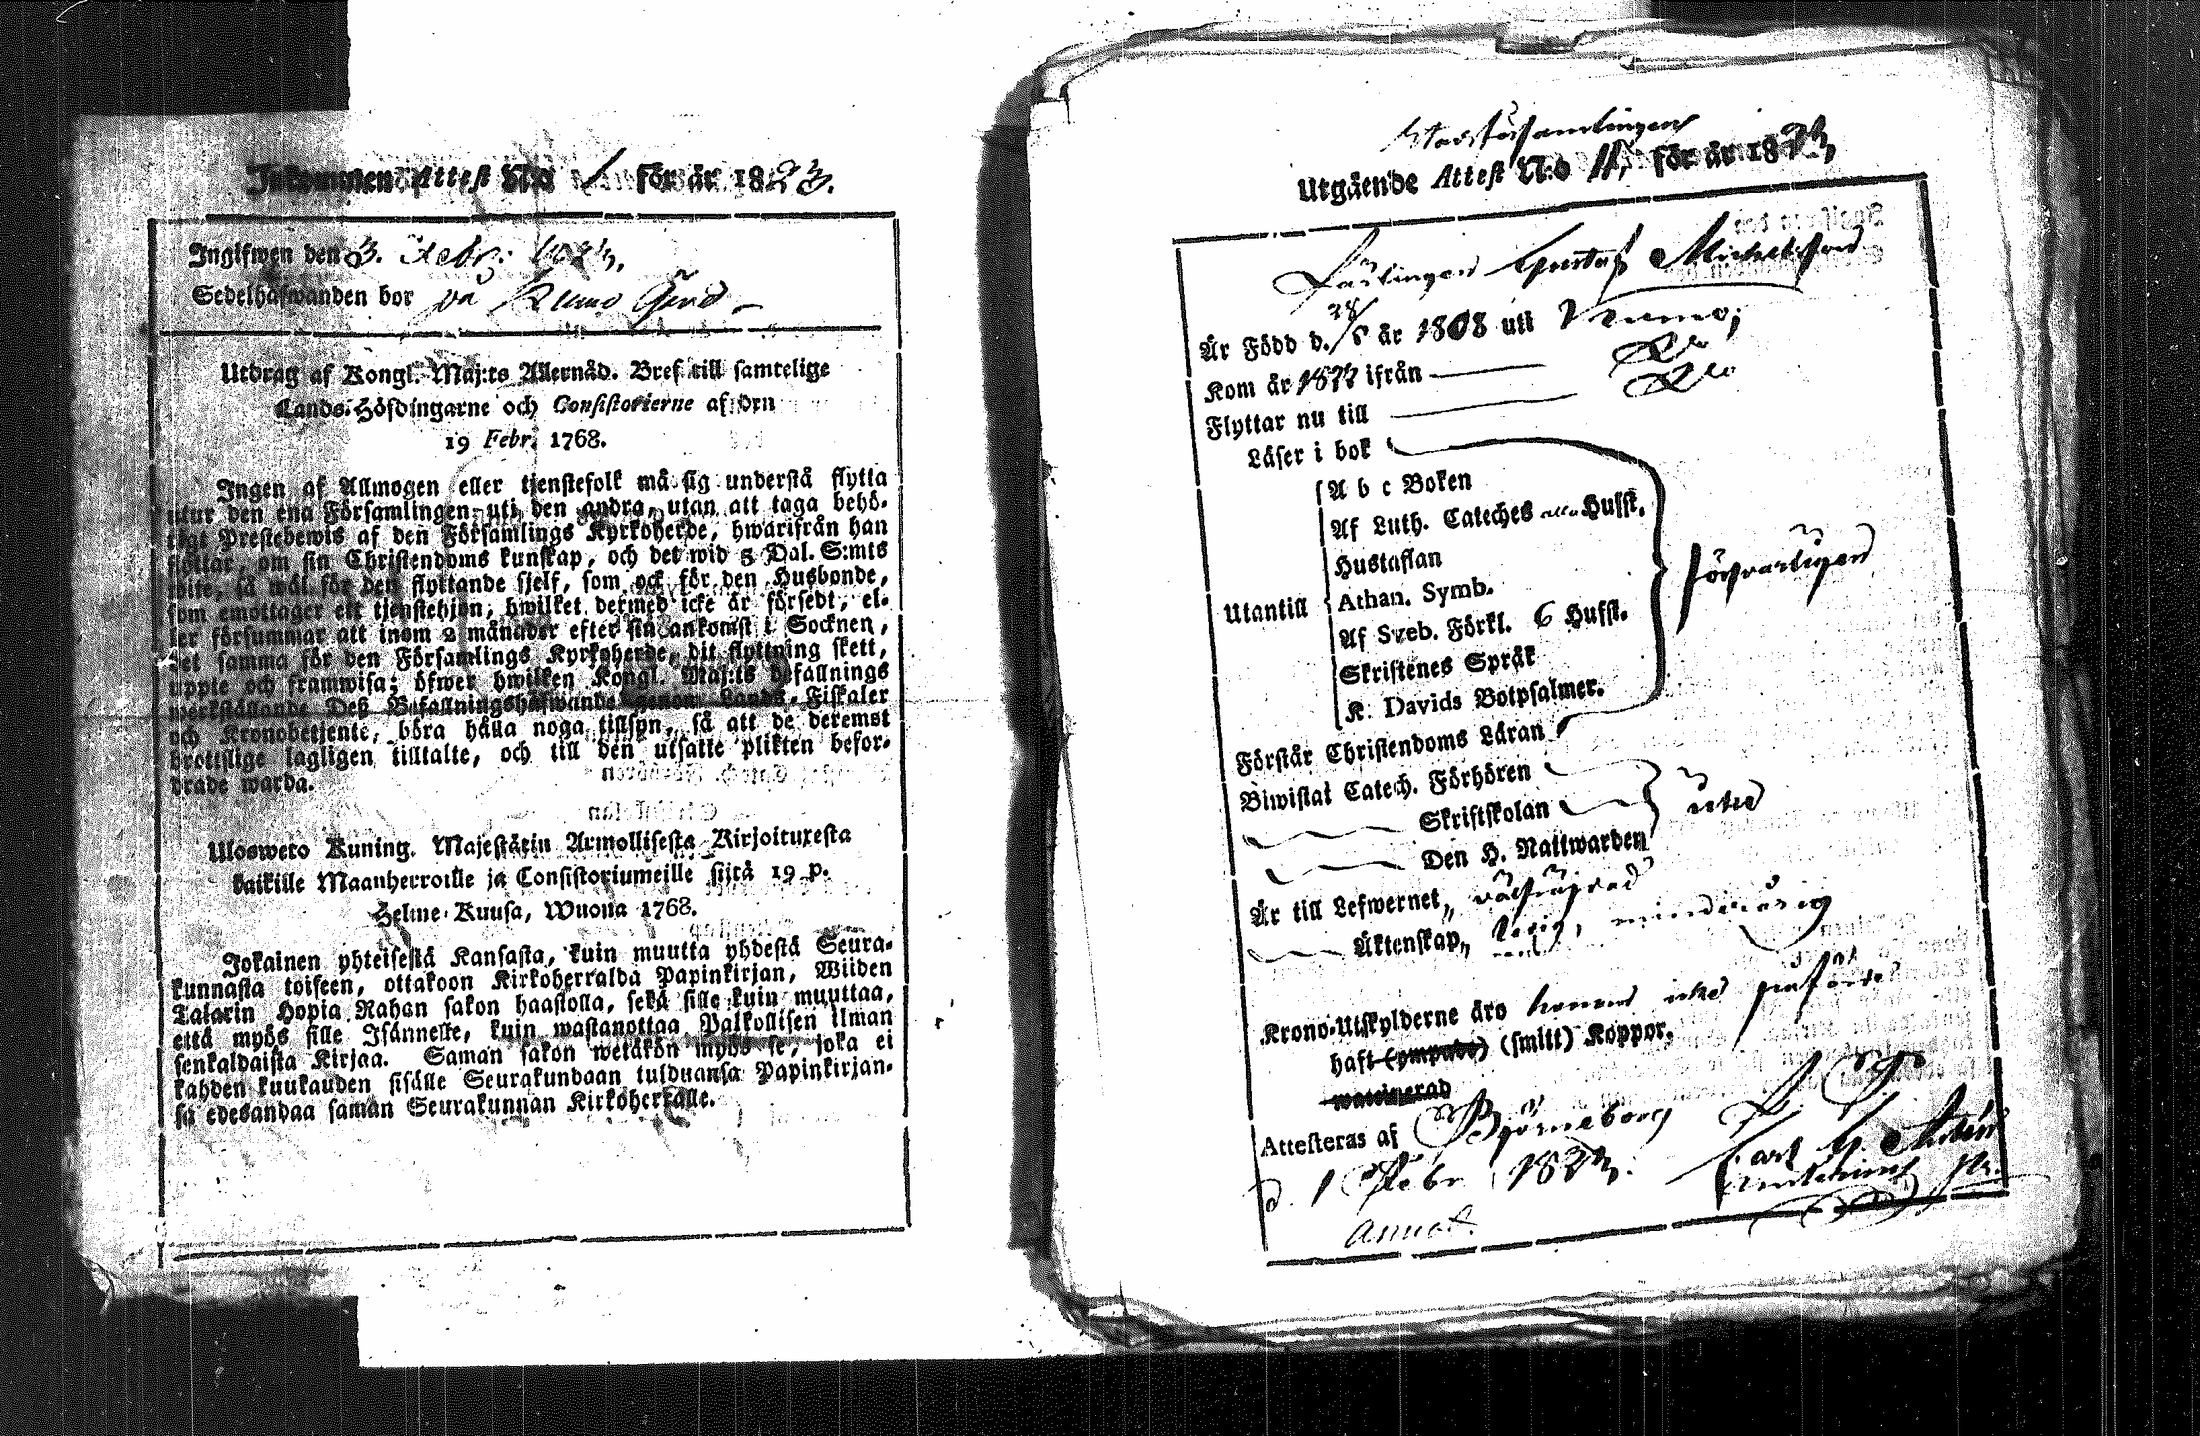 Inkommen Attest N:o 1 för år 1823.
Ingifwen den 3. Febr. 1823.
Sedelhafwanden bor på Kumo Gård
Utdrag af Kongl. Maj:ts Allernåd. Bref till samtelige
Lands-Höfdingarne och Consistorierne af den
19 Febr. 1768.
Ingen af Allmogen eller tjenstefolk må sig understå flytta
utur den ena Församlingen uti den andra, utan att taga behö-
rigt Prestebewis af den Församlings Kyrkoherde, hwarifrån han
flyttar, om sin Christendoms kunskap, och det wid 5 Dal. S:mts
wite, så wäl för den flyttande sjelf, som ock för den Husbonde,
som emottager ett tjenstehjon, hwilket dermed icke är försedt, el-
ler försummar att inom 2 månader efter sin ankomst i Socknen,
det samma för den Församlings Kyrkoherde, dit flyttning skett,
uppte och framwisa; öfwer hwilken Kongl. Maj:ts befallnings
werkställande Deß Befallningshafwande genom Lands-Fiskaler
och Kronobetjente, böra hålla noga tillsyn, så att de deremot
brottslige lagligen tilltalte, och till den utsatte plikten befor-
drade warda.
Ulosweto Kuning. Majestätin Armollisesta Kirjoituxesta
kaikille Maanherroille ja Consistoriumeille siitä 19 p.
Helme-Kuusa, Wuona 1768.
Jokainen yhteisestä Kansasta, kuin muutta yhdestä Seura-
kunnasta toiseen, ottakoon Kirkoherralda Papinkirjan, Wiiden
Talarin Hopia Rahan sakon haastolla, sekä sille kuin muuttaa,
että myös sille Isännelle, kuin wastanottaa Palkollisen ilman
senkaldaista Kirjaa. Saman sakon wetäkön myös se, joka ei
kahden kuukauden sisälle Seurakundaan tulduansa Papinkirjan-
sa edesandaa saman Seurakunnan Kirkoherralle.
Stadsförsamlingens
Utgående Attest N:o 11, för år 1823,
Lärlingen Gustaf Michelsson
Är Född d. 28/8 år 1808 uti Kumo;
Kom år 1822 ifrån
Flyttar nu till
Läser i bok
A b c Boken
Af Luth. Cateches alla Hufst.
Hustaflan
Utantill Athan. Symb. försvarligen
Af Sveb. Förkl. 6 Hufst.
Skriftenes Språk
K. Davids Botpsalmer.
Förstår Christendoms Läran
Biwistat Catech. Förhören
Skriftskolan icke
Den H. Nattwarden
Är till Lefwernet, välfrejdad
Äktenskap, ledig, minderårig
Krono-Utskylderne äro honom icke påförde
haft (ympade) (smitt) Koppor.
waccinerad
Attesteras af Björneborg
d. 1 Febr 1823. Carl G.
Annot.